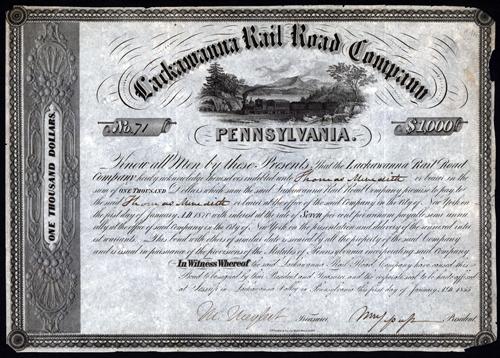 Lackawanna Rail Road Company
No. 71
$1,000
PENNSYLVANIA.
ONE THOUSAND DOLLARS.
Know all Men by these Presents That the Lackawanna Rail Road
Company hereby acknowledge themselves indebted unto Thomas Meredith or bearer in the
sum of ONE THOUSAND Dollars which sum the said Lackawanna Rail Road Company promise to pay to
the said Thomas Meredith or bearer at the office of the said Company in the City of New York on
the first day of January, A.D. with interest at the rate of Seven per cent per annum payable semi annu
ally at the office of said Company in the City of New York on the presentation and delivery of the annexed inter
est warrants. This bond with others of similar date is secured by all the property of the said Company
and is issued in pursuance of the provisions of the Statutes of Pennsylvania incorporating said Company.
In Witness Whereof the said Lackawanna Rail Road Company have caused this
Bond to be signed by their President and Treasurer and the corporate seal to be hereto affixed
at Lackawanna Valley in Pennsylvania this first day of January A.D.
Treasurer
President